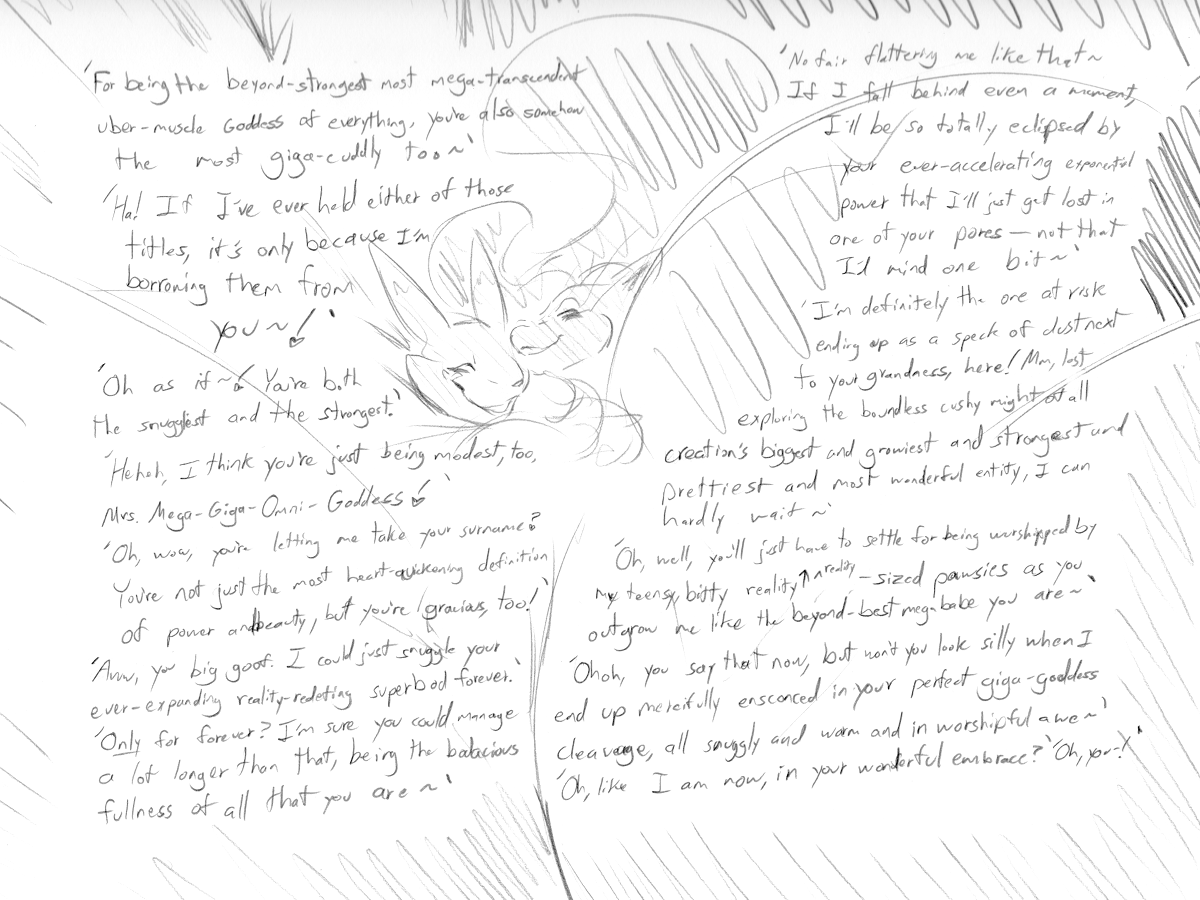 'For being the beyond-strongest most mega-transcendent
uber-muscle Goddess of everything, you're also somehow
the most giga-cuddly too~'
'Ha! If I've ever held either of those
titles, it's only because I'm
borrowing them from
you~!'
'Oh as if~! You're both
the snuggliest and the strongest.'
'Heheh, I think you're just being modest, too,
Mrs. Mega-Giga-Omni-Goddess!'
'Oh, wow, you're letting me take your surname?
You're not just the most heart-quickening definition
of power and beauty, but you're gracious, too!'
'Aww, you big goof. I could just snuggle your
ever-expanding reality-redefining superbod forever.'
'Only for forever? I'm sure you could manage
a lot longer than that, being the bodacious
fullness of all that you are~'
'No fair flattering me like that~
If I fall behind even a moment,
I'll be so totally eclipsed by
your ever-accelerating exponential
power that I'll just get lost in
one of your pores — not that
I'd mind one bit~'
'I'm definitely the one at risk
ending up as a speck of dust next
to your grandness, here! Mm, lost
exploring the boundless cushy might of all
creation's biggest and growiest and strongest and
prettiest and most wonderful entity, I can
hardly wait~'
'Oh, well, you'll just have to settle for being worshipped by
my teensy, bitty reality↑^reality-sized pawsies as you
outgrow me like the beyond-best megababe you are~'
'Ohoh, you say that now, but won't you look silly when I
end up mercifully ensconced in your perfect giga-goddess
cleavage, all snuggly and warm and in worshipful awe~'
'Oh, like I am now, in your wonderful embrace?' 'Oh, you~!'